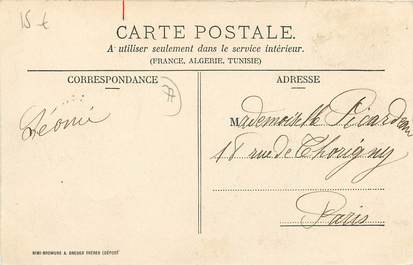 15 €
CARTE POSTALE.
A utiliser seulement dans le service intérieur.
(FRANCE, ALGERIE, TUNISIE)
CORRESPONDANCE
ADRESSE
Léonie
Mademoiselle Picardeau
18 rue de Thorigny
Paris
MIMI-BROMURE A. BREGER FRÈRES (DÉPOSÉ)